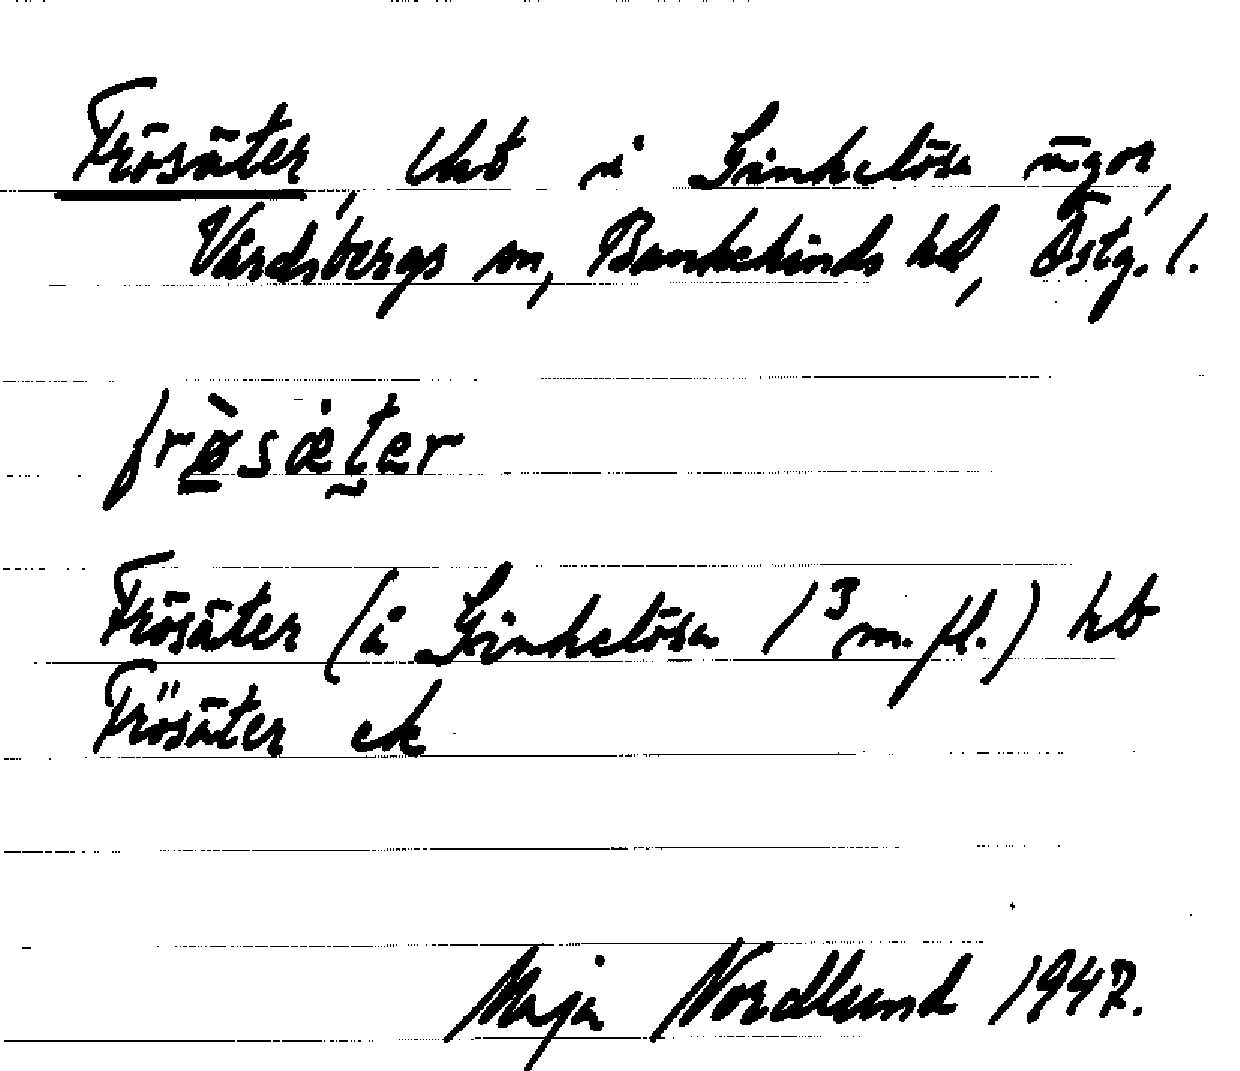 Frösäter, lht i Ginkelösa ägor,
Vårdsbergs sn, Bankekinds hd, Östg. l.
frø̀sætær
Frösäter (å Ginkelösa 1³ m.fl.) hb
Frösäter ek
Maja Nordlund 1947.